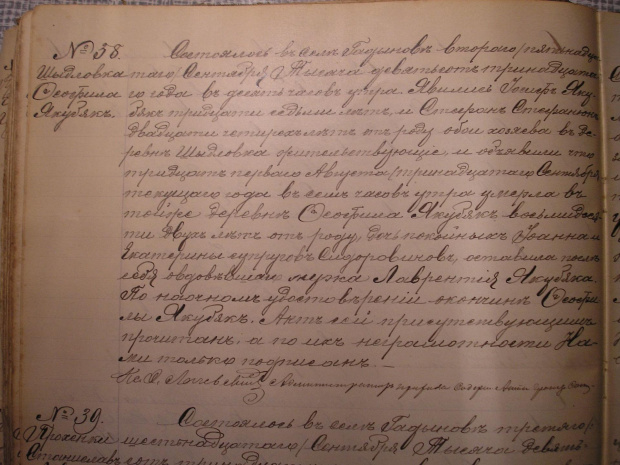 № 38.
Шыдловка
Ѳеофила
Якубякъ.
Состоялось въ селѣ Гадыновѣ второго /пятьнадца
таго/ Сентября Тысяча девятьсотъ тринадцата
го года въ десять часовъ утра. Явились Іосифъ Яку
бякъ тридцати седьми лѣтъ, и Стефанъ Стефанюкъ
двадцати четирехъ лѣтъ отъ роду обои хозяева въ де
ревнѣ Шыдловка жительствующіе, и объявили что
тридцать перваго Августа /тринадцатаго Сентября
текущаго года въ семь часовъ утра умерла въ
тойже деревнѣ Ѳеофила Якубякъ восьмидеся
ти двухъ лѣтъ отъ роду, дочь покойныхъ Іоанна и
Екатерины супруговъ Сидоровиновъ, оставила послѣ
себя овдовѣвшаго мужа Лаврентія Якубяка.
По наочномъ удостовѣреніи окончинѣ Ѳеофи
лы Якубякъ. Актъ сей присутствующимъ
прочитанъ, а по ихъ неграмотности На
ми только подписанъ. —
№ 39.
Прохенки
Станиславъ
Состоялось въ селѣ Гадыновѣ третяго/
шестьнадцатаго/ Сентября Тысяча девять
сотъ